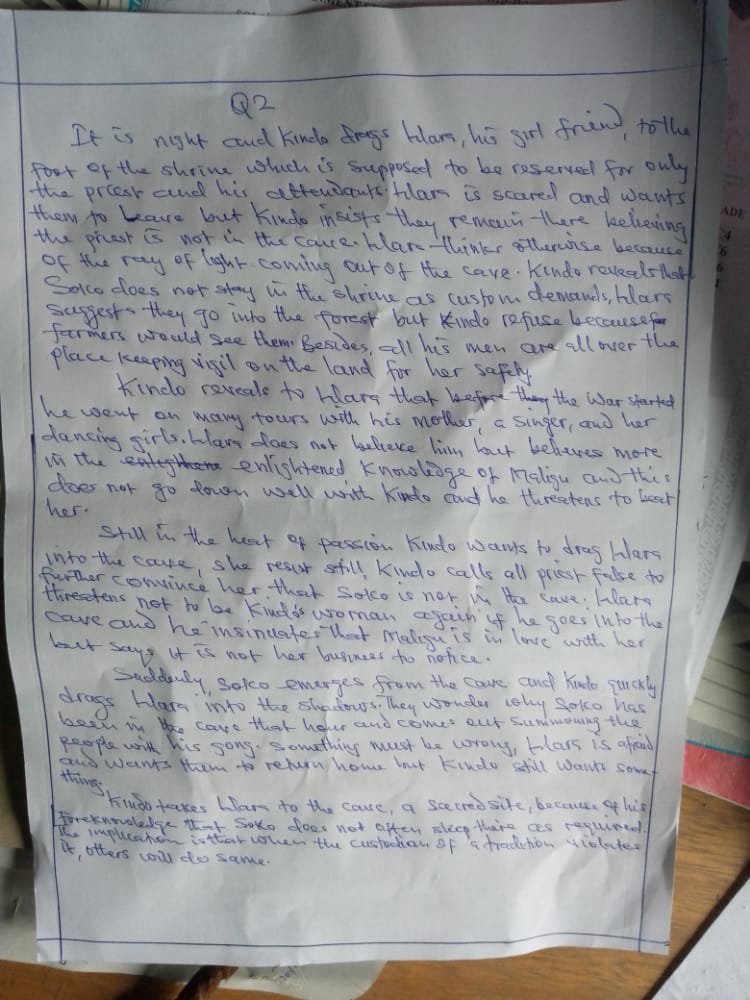 Q2
It is night and Kindo drags Wara, his girl friend, to the
foot of the shrine which is supposed to be reserved for only
the priest and his attendants. Wara is scared and wants
them to leave but Kindo insists they remain there believing
the priest is not in the cave. Wara thinks otherwise because
of the ray of light coming out of the cave. Kindo reveals that
Soko does not stay in the shrine as custom demands, Wara
suggests they go into the forest but Kindo refuse because
farmers would see them. Besides, all his men are all over the
place keeping vigil on the land for her safety
Kindo reveals to Wara that before the war started
he went on many tours with his mother, a singer, and her
dancing girls. Wara does not believe him but believes more
in the enlightened Knowledge of Maligu and this
does not go down well with Kindo and he threatens to beat
her.
Still in the heat of passion Kindo wants to drag Wara
into the cave, she resist still. Kindo calls all priest false to
further convince her that Soko is not in the cave. Wara
threatens not to be Kindo's woman again if he goes into the
cave and he insinuates that Maligu is in love with her
but says it is not her business to notice.
Suddenly, Soko emerges from the cave and Kindo quickly
drags Wara into the shadows. They wonder why Soko has
been in the cave that hour and comes out summoning the
people with his gong. Something must be wrong, Wara is afraid
and wants them to return home but Kindo still wants some-
thing.
Kindo takes Wara to the cave, a sacred site, because of his
foreknowledge that Soko does not often sleep there as required.
The implication is that when the custodian of a tradition violates
it, others will do same.